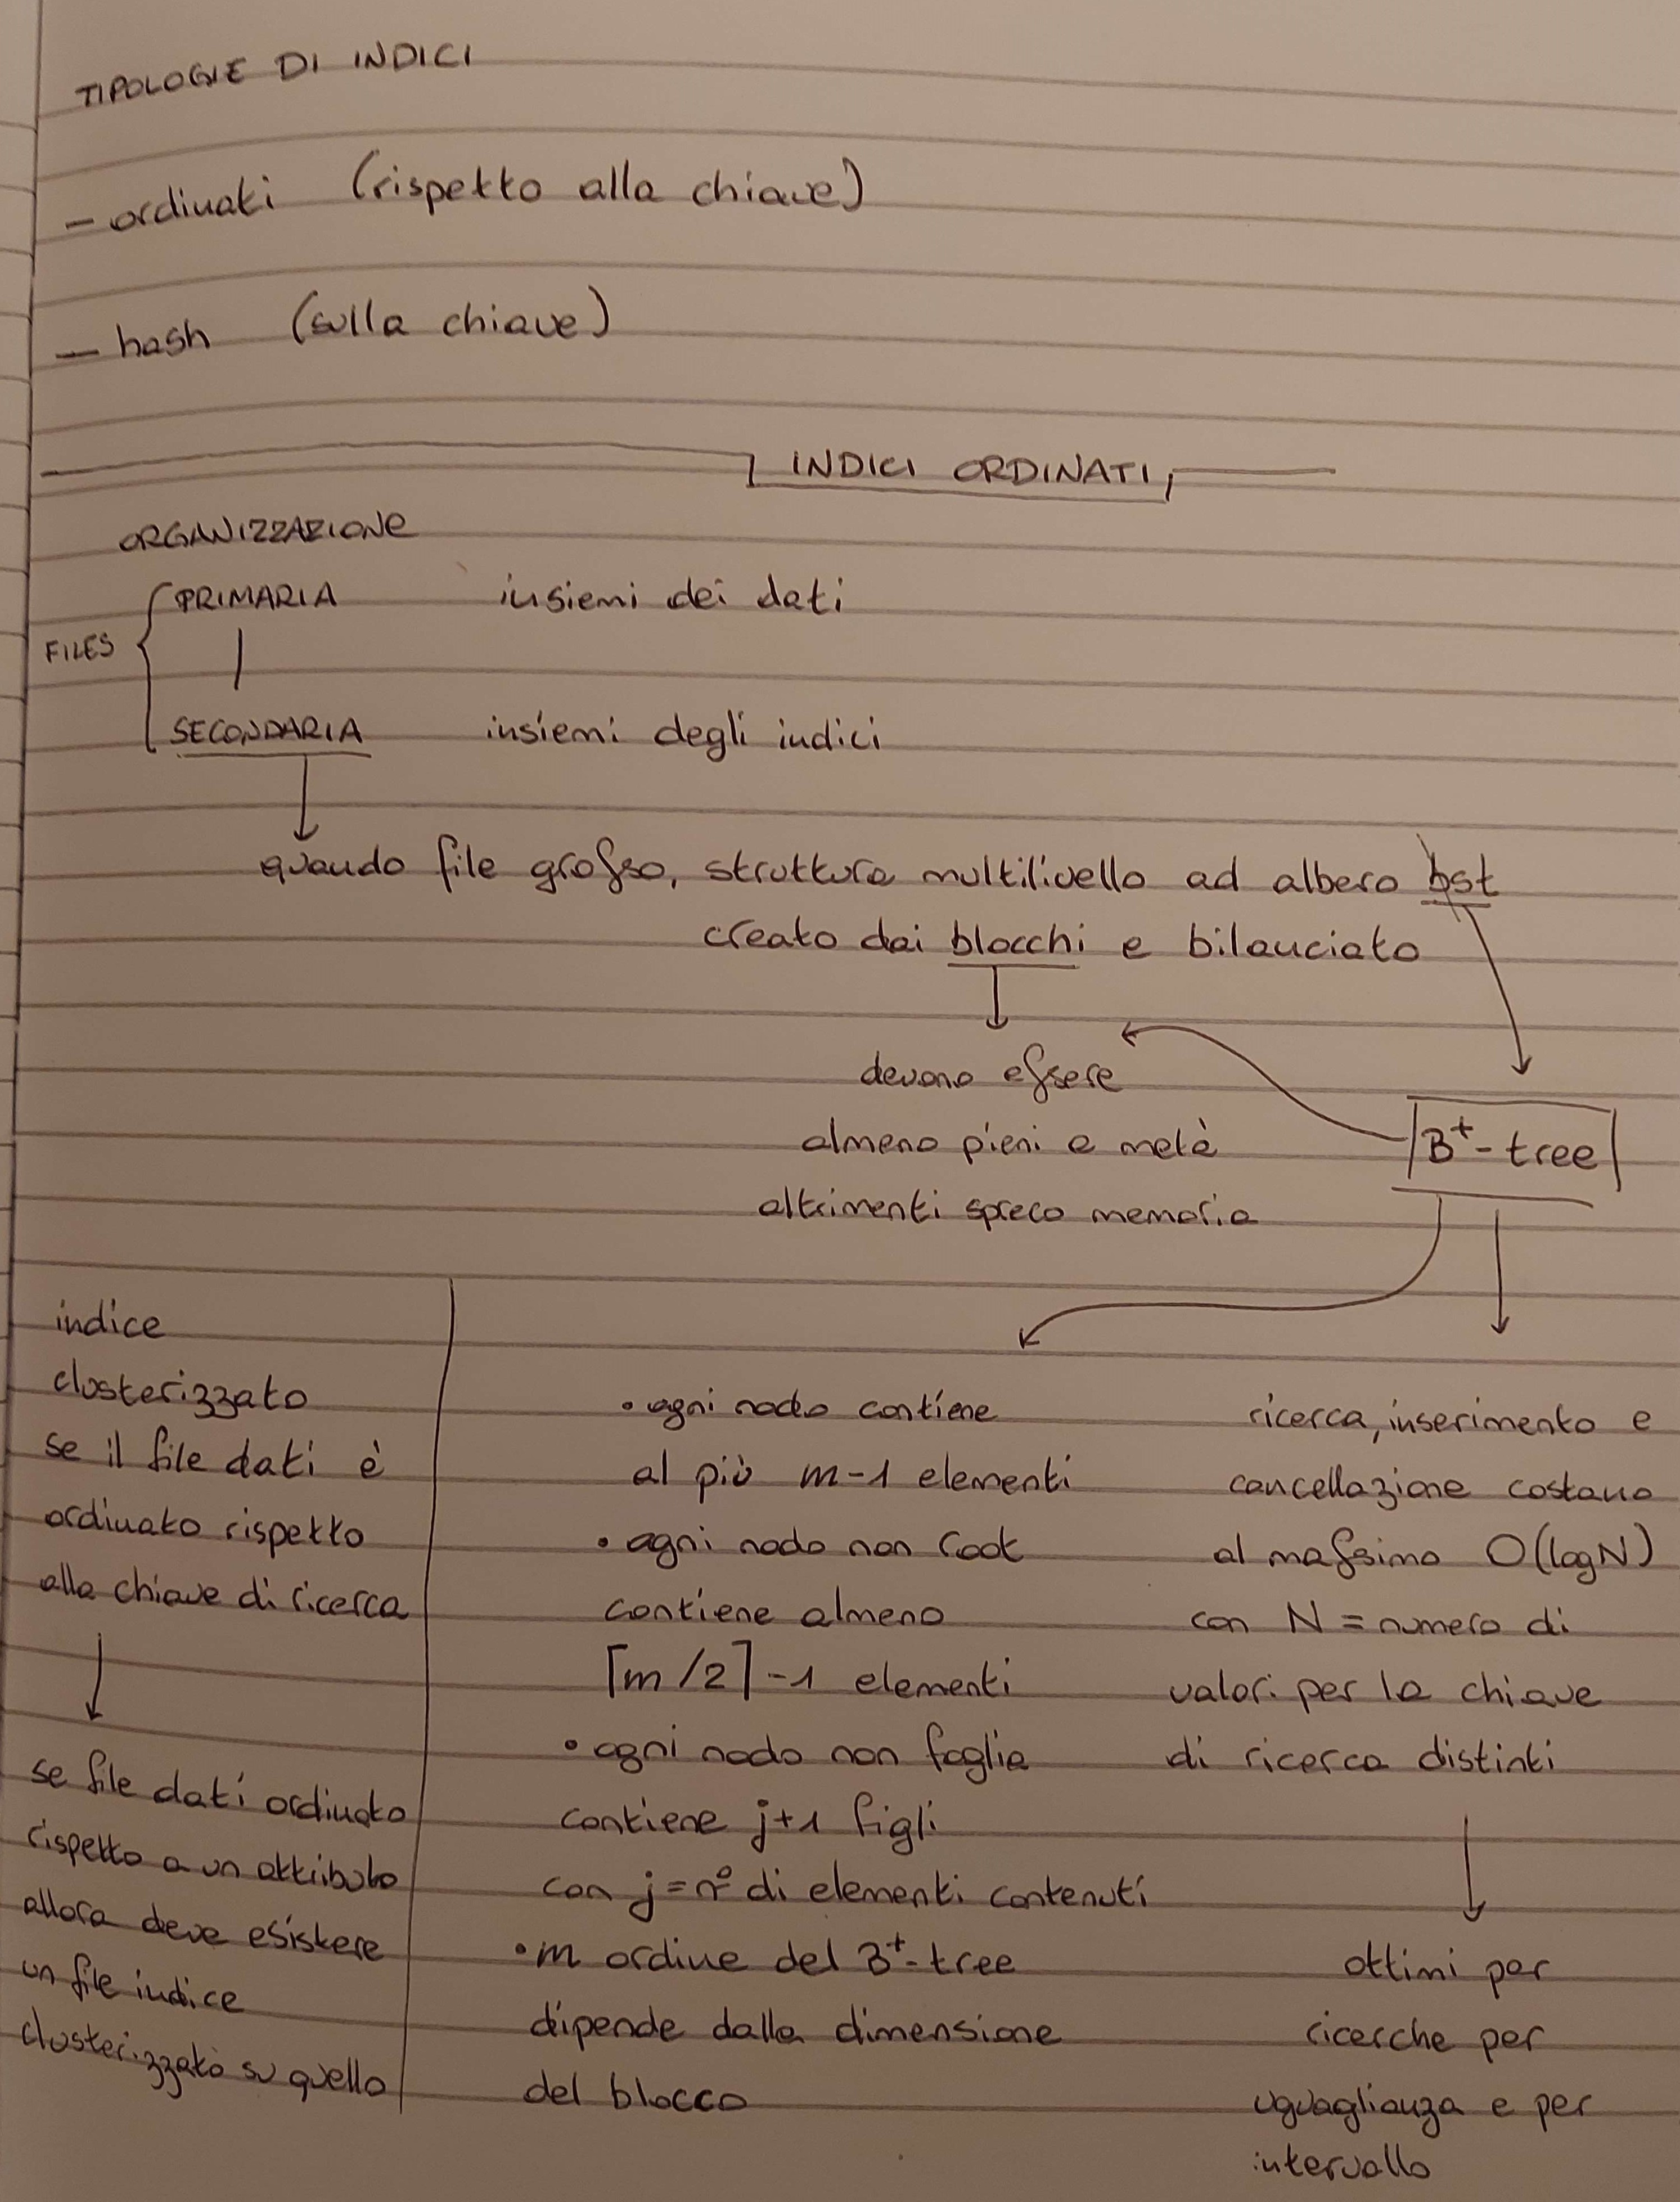 TIPOLOGIE DI INDICI
- ordinati (rispetto alla chiave)
- hash (sulla chiave)
INDICI ORDINATI
ORGANIZZAZIONE
FILES
PRIMARIA insiemi dei dati
SECONDARIA insiemi degli indici
quando file grosso, struttura multilivello ad albero bst
creato dai blocchi e bilanciato
devono essere
almeno pieni a metà
altrimenti spreco memoria
B⁺-tree
indice
clusterizzato
se il file dati è
ordinato rispetto
alla chiave di ricerca
se file dati ordinato
rispetto a un attributo
allora deve esistere
un file indice
clusterizzato su quello
• ogni nodo contiene
al più m-1 elementi
• ogni nodo non root
contiene almeno
⌈m/2⌉-1 elementi
• ogni nodo non foglia
contiene j+1 figli
con j = n° di elementi contenuti
• m ordine del B⁺-tree
dipende dalla dimensione
del blocco
ricerca, inserimento e
cancellazione costano
al massimo O(logN)
con N = numero di
valori per la chiave
di ricerca distinti
ottimi per
ricerche per
uguaglianza e per
intervallo